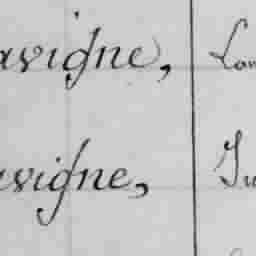 avigne, Lou
avigne, Ju